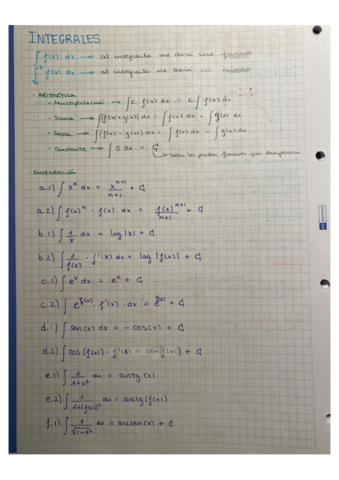 INTEGRALES
∫ f(x) dx → al integrarlo me dará una función
∫ f(x) dx → al integrarlo me dará un número
· ARITMÉTICA
- Multiplicación → ∫ c f(x) dx = c ∫ f(x) dx
- Suma → ∫(f(x)+g(x)) dx = ∫ f(x) dx + ∫ g(x) dx
- Resta → ∫(f(x) - g(x)) dx = ∫ f(x) dx - ∫ g(x) dx
- Constante → ∫ 0 dx = C
↳ todas las posibles que desaparecen
· INTEGRACIÓN
a.1) ∫ xⁿ dx = xⁿ⁺¹/n+1 + C
a.2) ∫ f(x)ⁿ · f(x) dx = f(x)ⁿ⁺¹/n+1 + C
b.1) ∫ 1/x dx = log |x| + C
b.2) ∫ 1/f(x) · f'(x) dx = log |f(x)| + C
c.1) ∫ eˣ dx = eˣ + C
c.2) ∫ e^f(x) · f'(x) · dx = e^f(x) + C
d.1) ∫ sen(x) dx = - cos(x) + C
d.2) ∫ cos(f(x)) · f'(x) = sen(f(x)) + C
e.1) ∫ 1/1+x² dx = arctg (x)
e.2) ∫ 1/1+(f(x))² dx = arctg (f(x))
f.1) ∫ 1/√1-x² dx = arcsen(x) + C